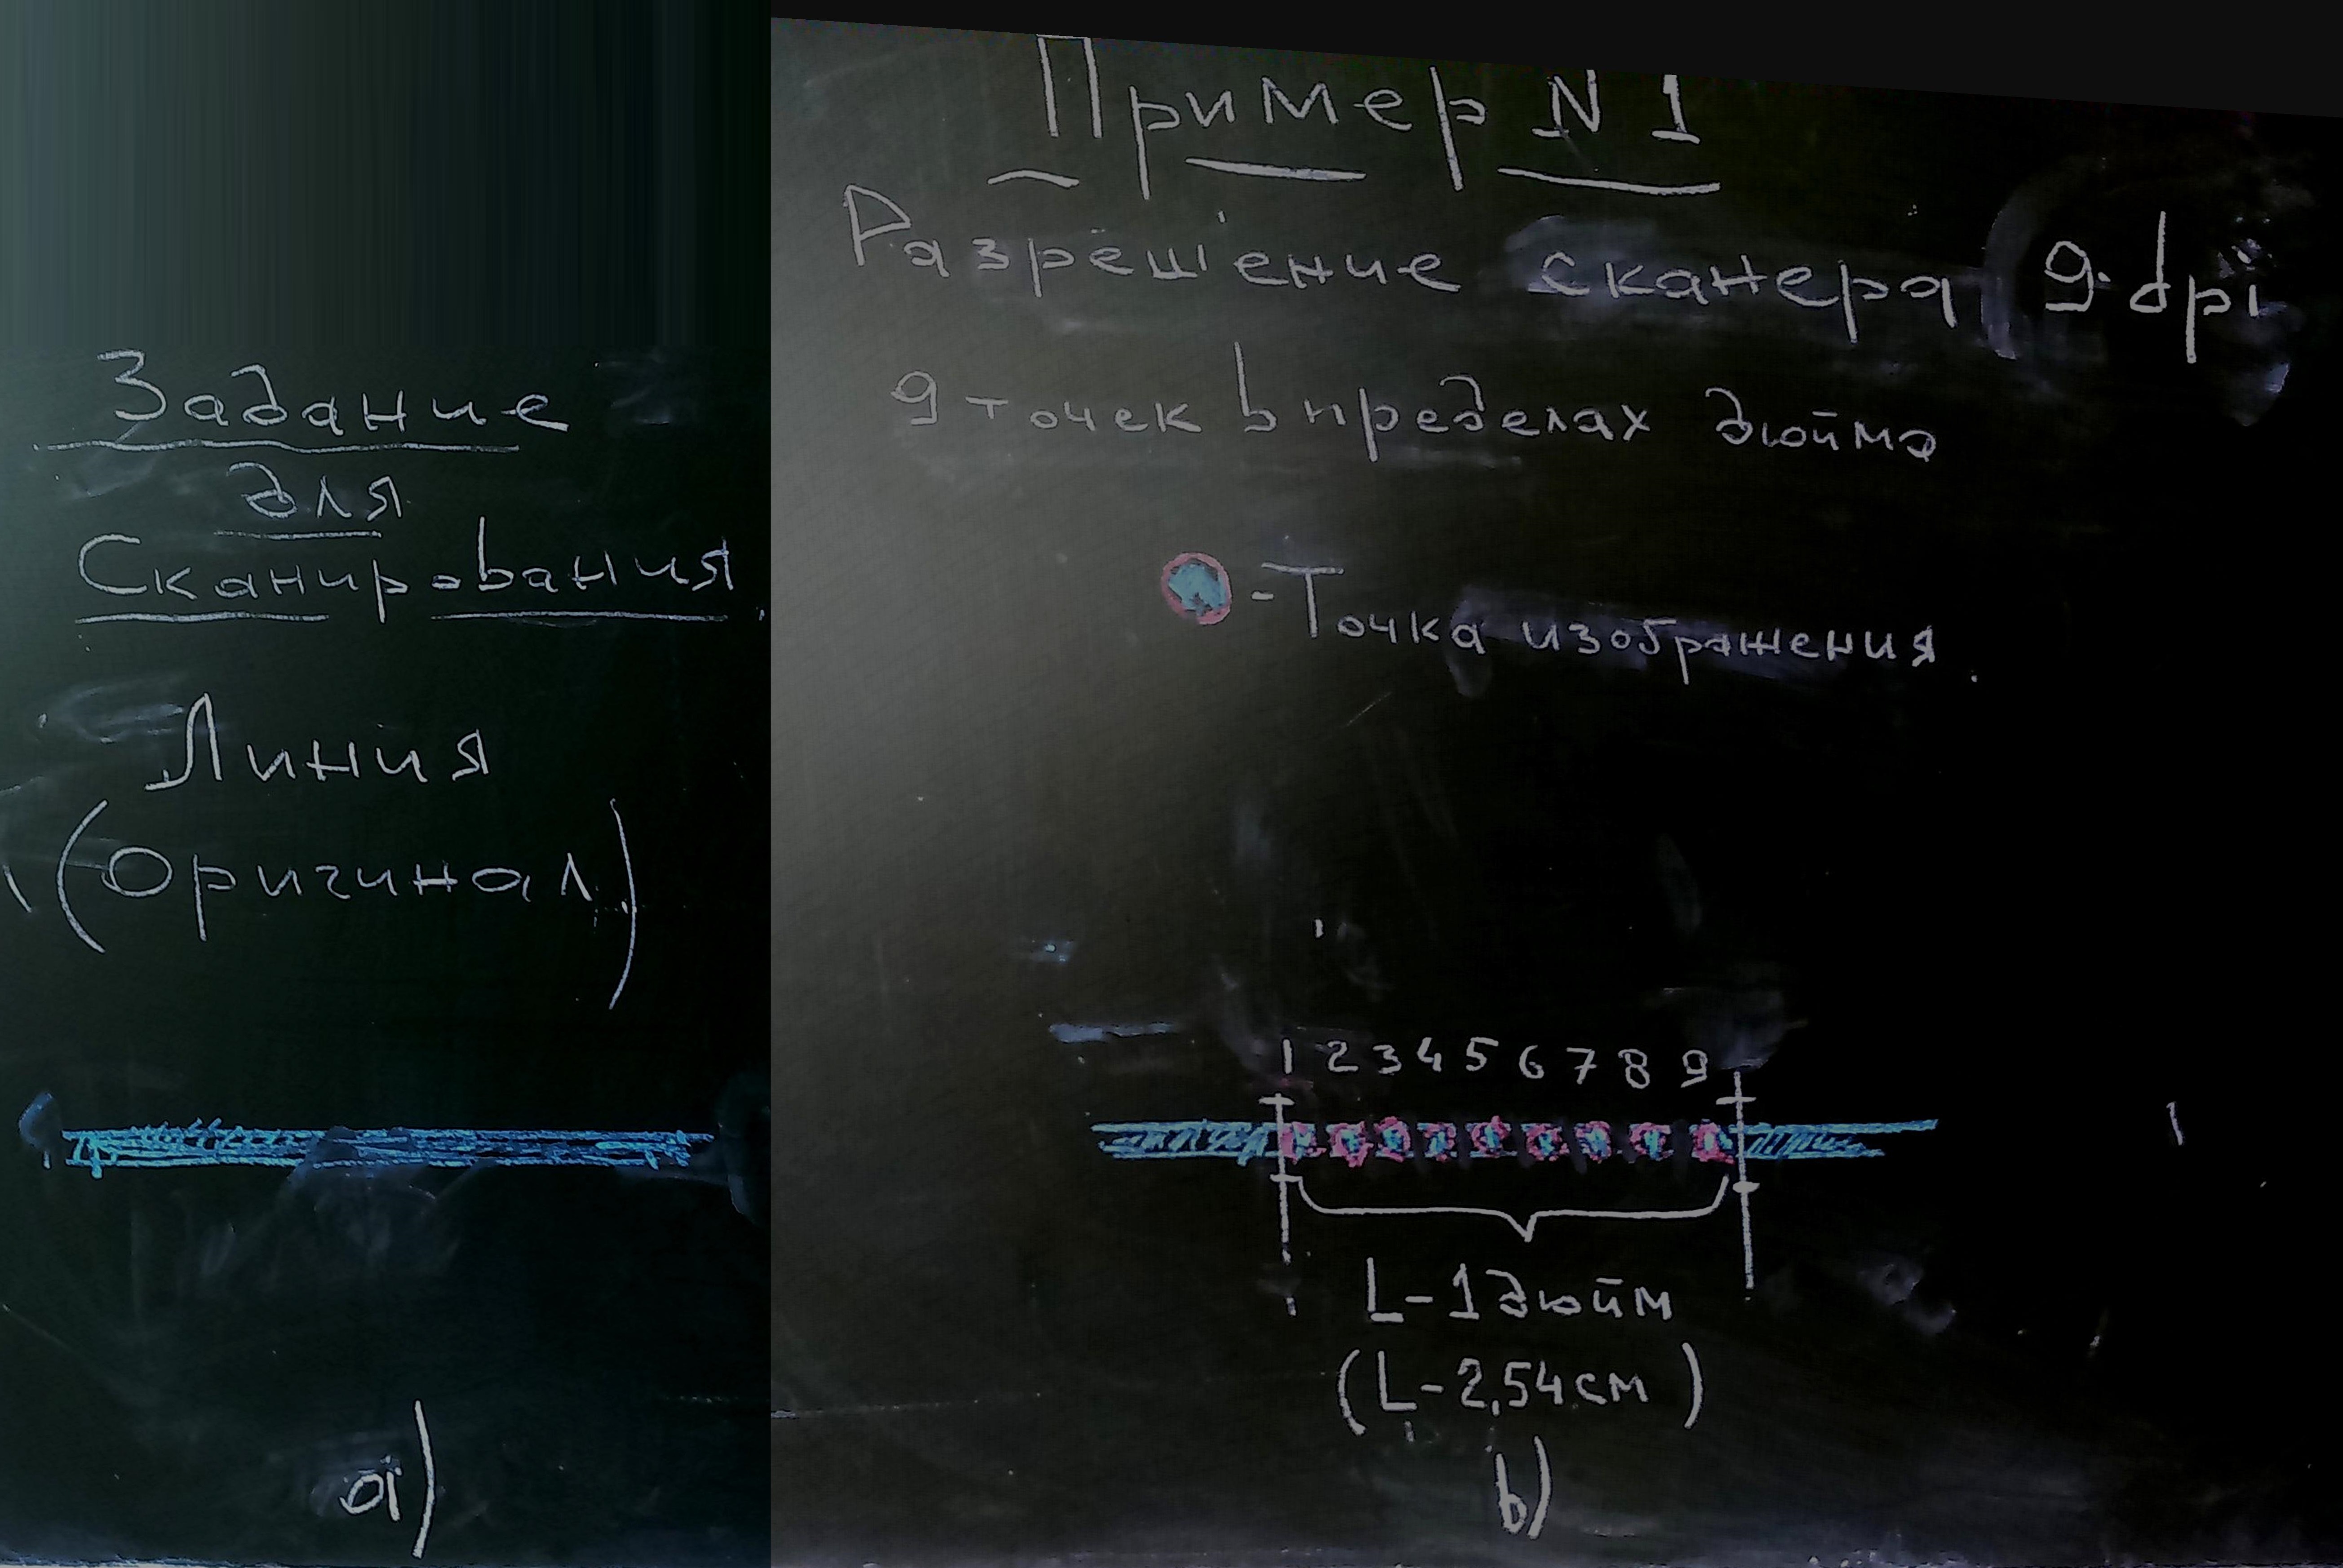 Задание
для
Сканирования
Линия
(Оригинал)
a)
Пример N 1
Разрешение сканера 9 dpi
9 точек в пределах дюйма
- Точка изображения
1 2 3 4 5 6 7 8 9
L - 1 дюйм
(L - 2,54 см)
b)